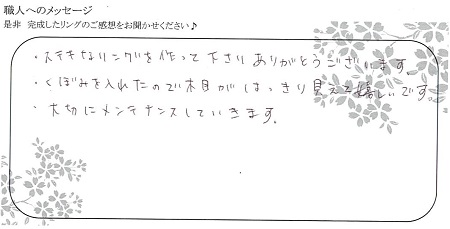 職人へのメッセージ
是非 完成したリングのご感想をお聞かせください♪
・ステキなリングを作って下さりありがとうございます。
・くぼみを入れたので木目がはっきり見えて嬉しいです。
・大切にメンテナンスしていきます。